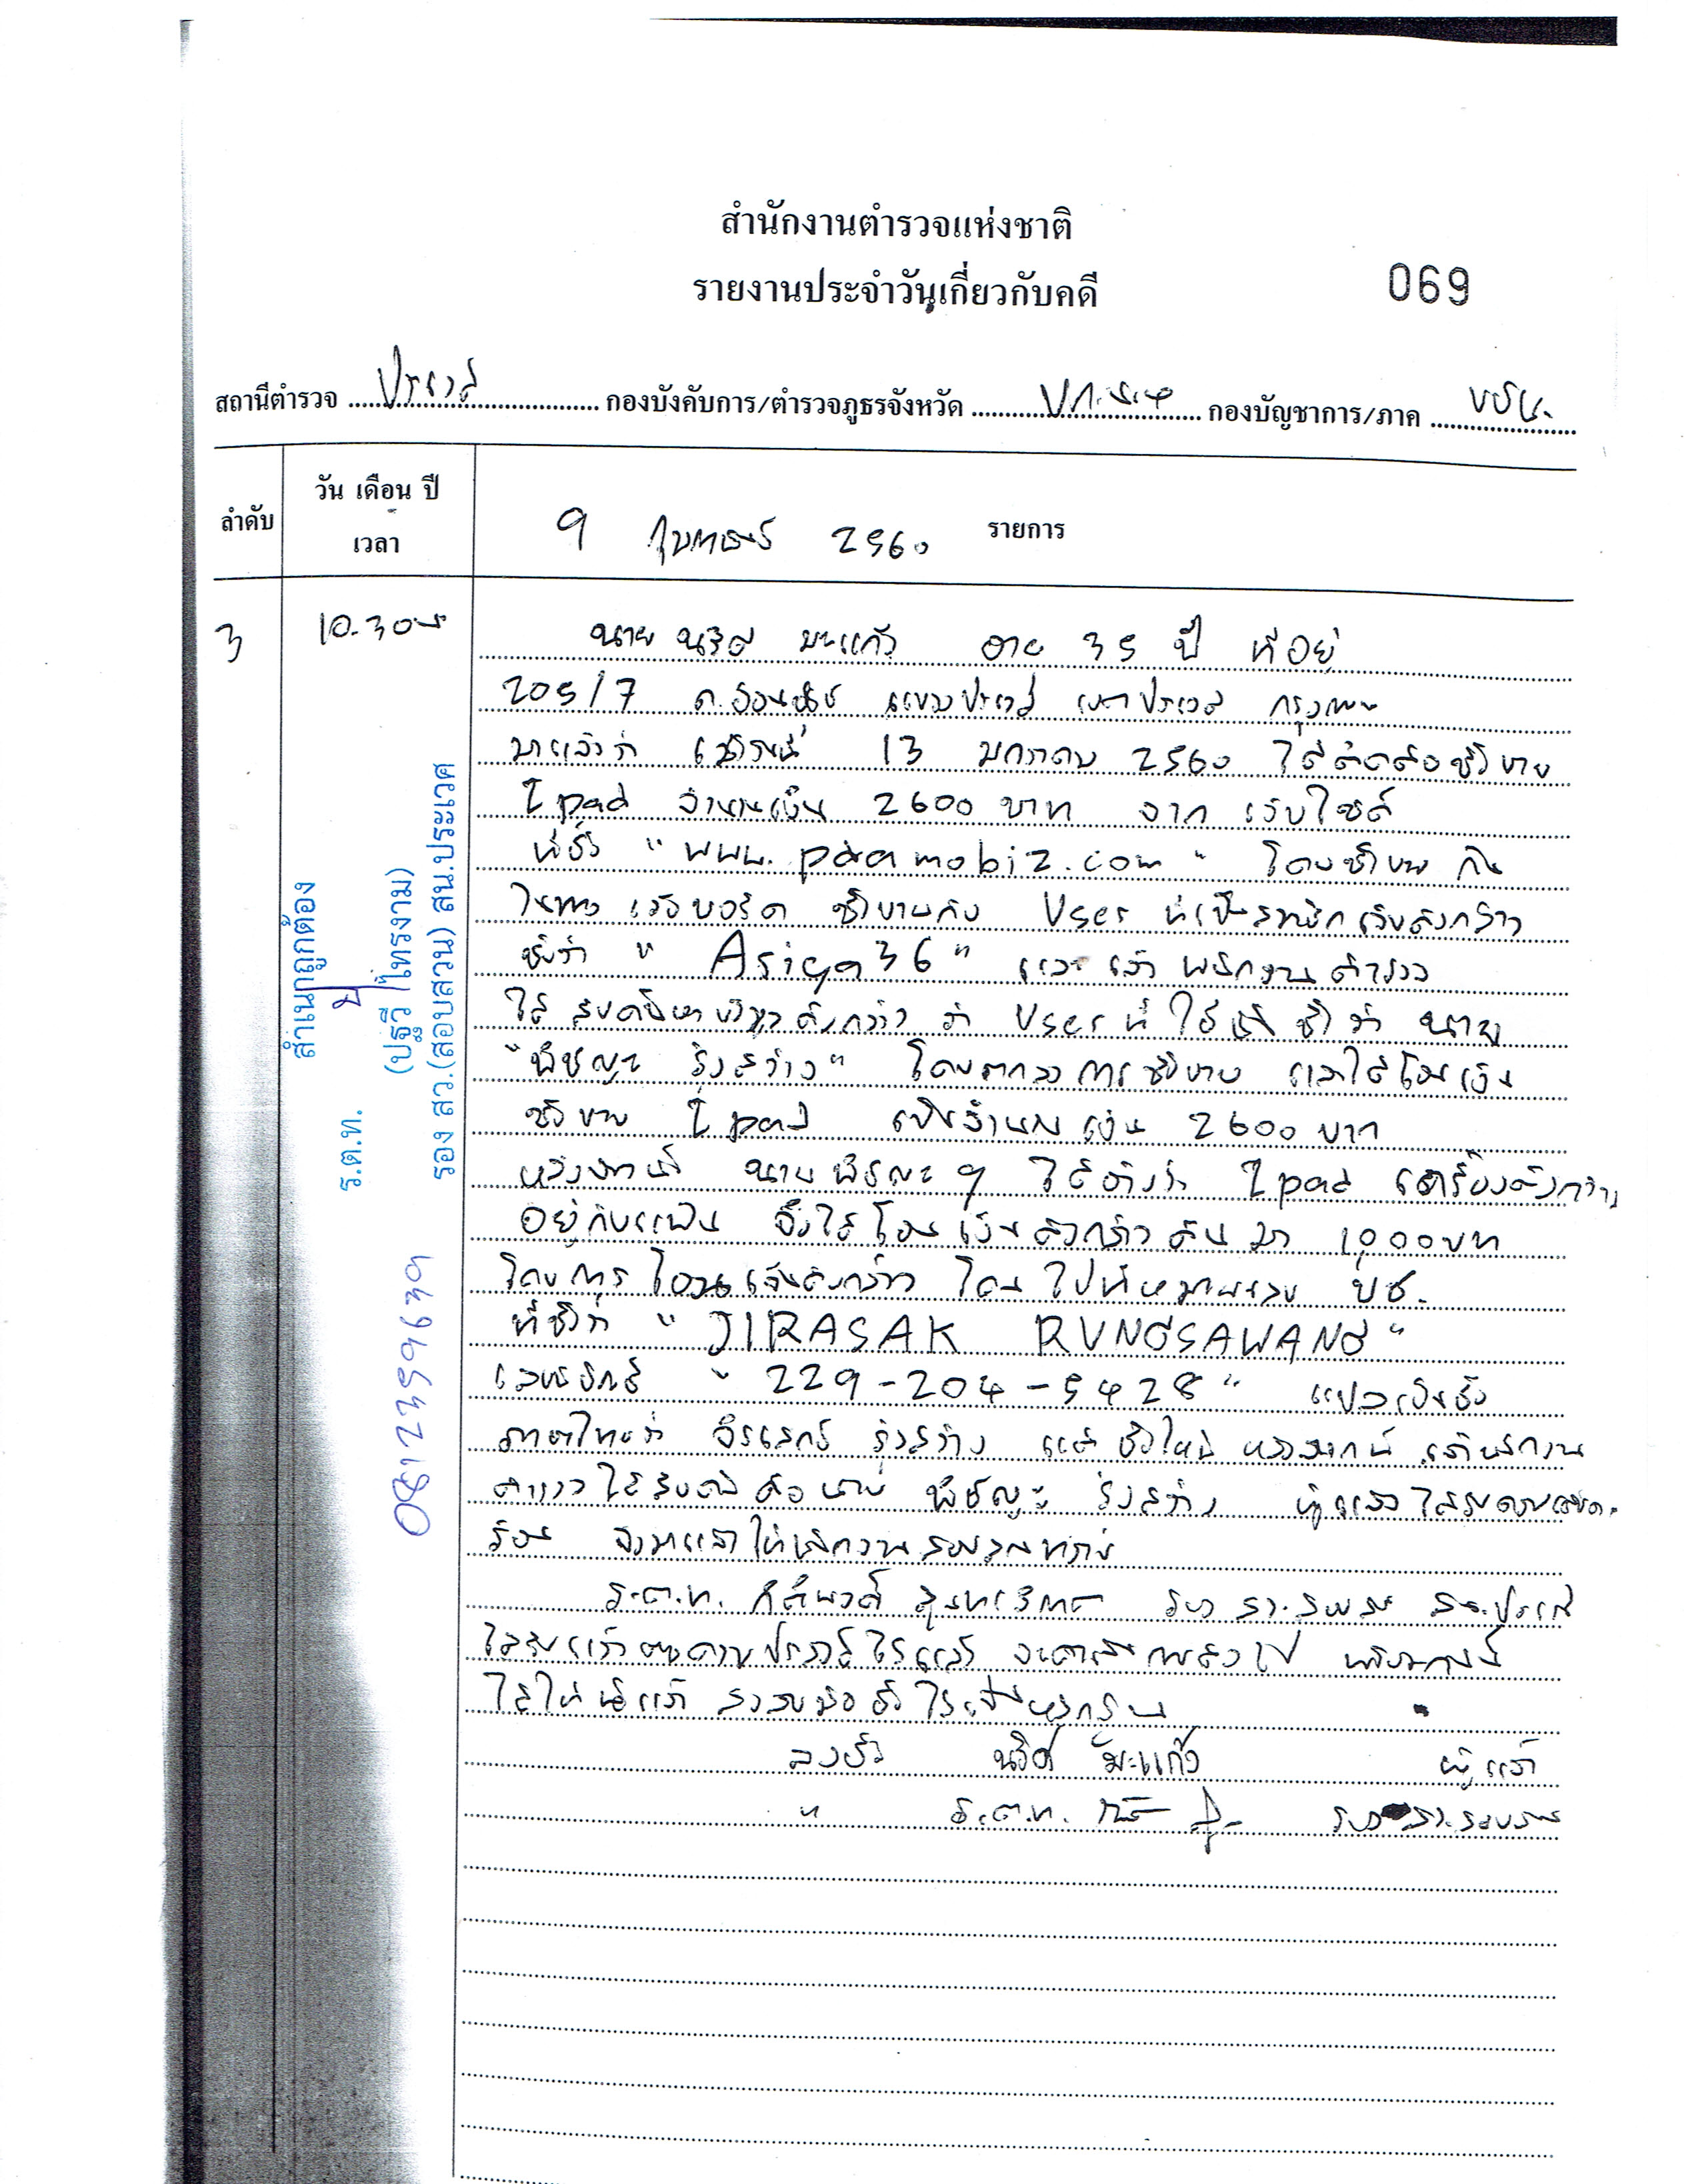 สำนักงานตำรวจแห่งชาติ
รายงานประจำวันเกี่ยวกับคดี
069
สถานีตำรวจ ประเวศ กองบังคับการ/ตำรวจภูธรจังหวัด กองบัญชาการ/ภาค บช.น.
ลำดับ
วัน เดือน ปี
เวลา
9 กุมภาพันธ์ 2560 รายการ
3 10.30 น นาย มะแก้ว อายุ 35 ปี ที่อยู่
205/7 ถ.อ่อนนุช แขวงประเวศ เขตประเวศ กรุงเทพ
มาแจ้งว่า เมื่อวันที่ 13 มกราคม 2560 ได้ติดต่อซื้อขาย
Ipad จำนวนเงิน 2600 บาท จาก เว็บไซต์
ที่ชื่อ " www.pdamobiz.com " โดยซื้อขาย กัน
ในทาง เว็บบอร์ด ซื้อขายกับ User ที่เป็นสมาชิกเว็บดังกล่าว
ชื่อว่า " Asiya36 " และ เจ้าพนักงานตำรวจ
ได้ ดังกล่าว ว่า User ที่ ใช้ ชื่อว่า นาย
" รุ่งสว่าง" โดยตกลงการซื้อขาย และได้โอนเงิน
ซื้อขาย Ipad เป็นจำนวนเงิน 2600 บาท
หลังจากนี้ นาย ฯ ได้อ้างว่า Ipad เครื่องดังกล่าว
อยู่กับแฟน จึงได้โอนเงินดังกล่าวคืนมา 1000 บาท
โดยการโอนเงินดังกล่าว โอนไปที่หมายเลข บช.
ที่ชื่อว่า " JIRASAK RUNGSAWANG "
เลขบัญชี " 229-204-5428 " แปลเป็นชื่อ
ภาษาไทยว่า จิรศักดิ์ รุ่งสว่าง แต่ ชื่อใหม่ หลังจากนี้ เจ้าพนักงาน
ตำรวจได้สืบ คือ นาย รุ่งสว่าง ผู้แจ้งได้รับความเดือด
ร้อน จึงมาแจ้งให้พนักงานสอบสวนทราบ
ร.ต.ท. รอง สว.สอบสวน สน.ประเวศ
ได้รับแจ้งตามความประสงค์ไว้แล้ว จะดำเนินการต่อไป
ได้ให้ผู้แจ้ง ลงลายมือชื่อไว้เป็นหลักฐาน
ลงชื่อ มะแก้ว ผู้แจ้ง
" ร.ต.ท. รอง สว.สอบสวน
สำเนาถูกต้อง
ร.ต.ท.
(ปฐวี ไทรงาม)
รอง สว.(สอบสวน) สน.ประเวศ
0812359639